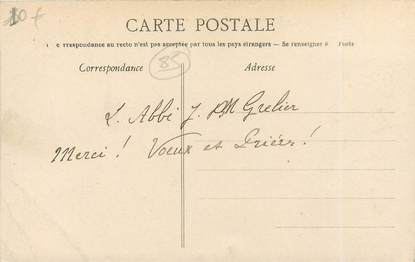 10 f
CARTE POSTALE
La Correspondance au recto n'est pas acceptée par tous les pays étrangers — Se renseigner à la Poste
Correspondance
85
Adresse
L'Abbé J. PM Grelier
Merci ! Voeux et Prières !